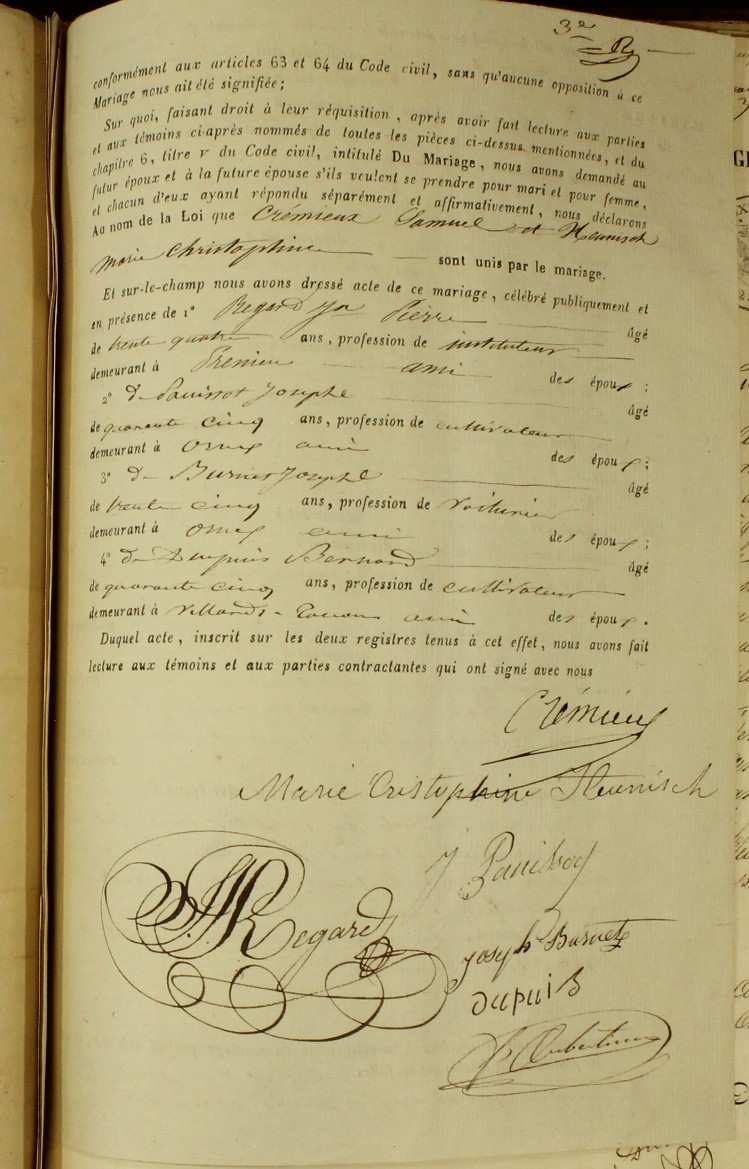 3e R
conformément aux articles 63 et 64 du Code civil, sans qu'aucune opposition à ce
Mariage nous ait été signifiée;
Sur quoi, faisant droit à leur réquisition, après avoir fait lecture aux parties
et aux témoins ci-après nommés de toutes les pièces ci-dessus mentionnées, et du
chapitre 6, titre V du Code civil, intitulé Du Mariage, nous avons demandé au
futur époux et à la future épouse s'ils veulent se prendre pour mari et pour femme,
et chacun d'eux ayant répondu séparément et affirmativement, nous déclarons
Au nom de la Loi que Crémieux Samuel et Heunisch
marie Christophine sont unis par le mariage.
Et sur-le-champ nous avons dressé acte de ce mariage, célébré publiquement et
en présence de 1° Regard Pierre âgé
de trente quatre ans, profession de instituteur
demeurant à ami des époux;
2° Joseph âgé
de quarante cinq ans, profession de cultivateur
demeurant à Ornex ami des époux;
3° Joseph âgé
de trente cinq ans, profession de voiturier
demeurant à Ornex ami des époux;
4° Dupuis Bernard âgé
de quarante cinq ans, profession de cultivateur
demeurant à Villards ami des époux.
Duquel acte, inscrit sur les deux registres tenus à cet effet, nous avons fait
lecture aux témoins et aux parties contractantes qui ont signé avec nous
Crémieux
Marie Cristophine Heunisch
J
Regard
Joseph Burnet
Dupuis